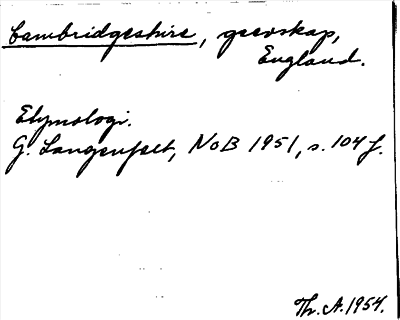 Cambridgeshire, grevskap,
England.
Etymologi.
G. Langenfelt, NoB 1951, s. 104 f.
Th. A. 1954.